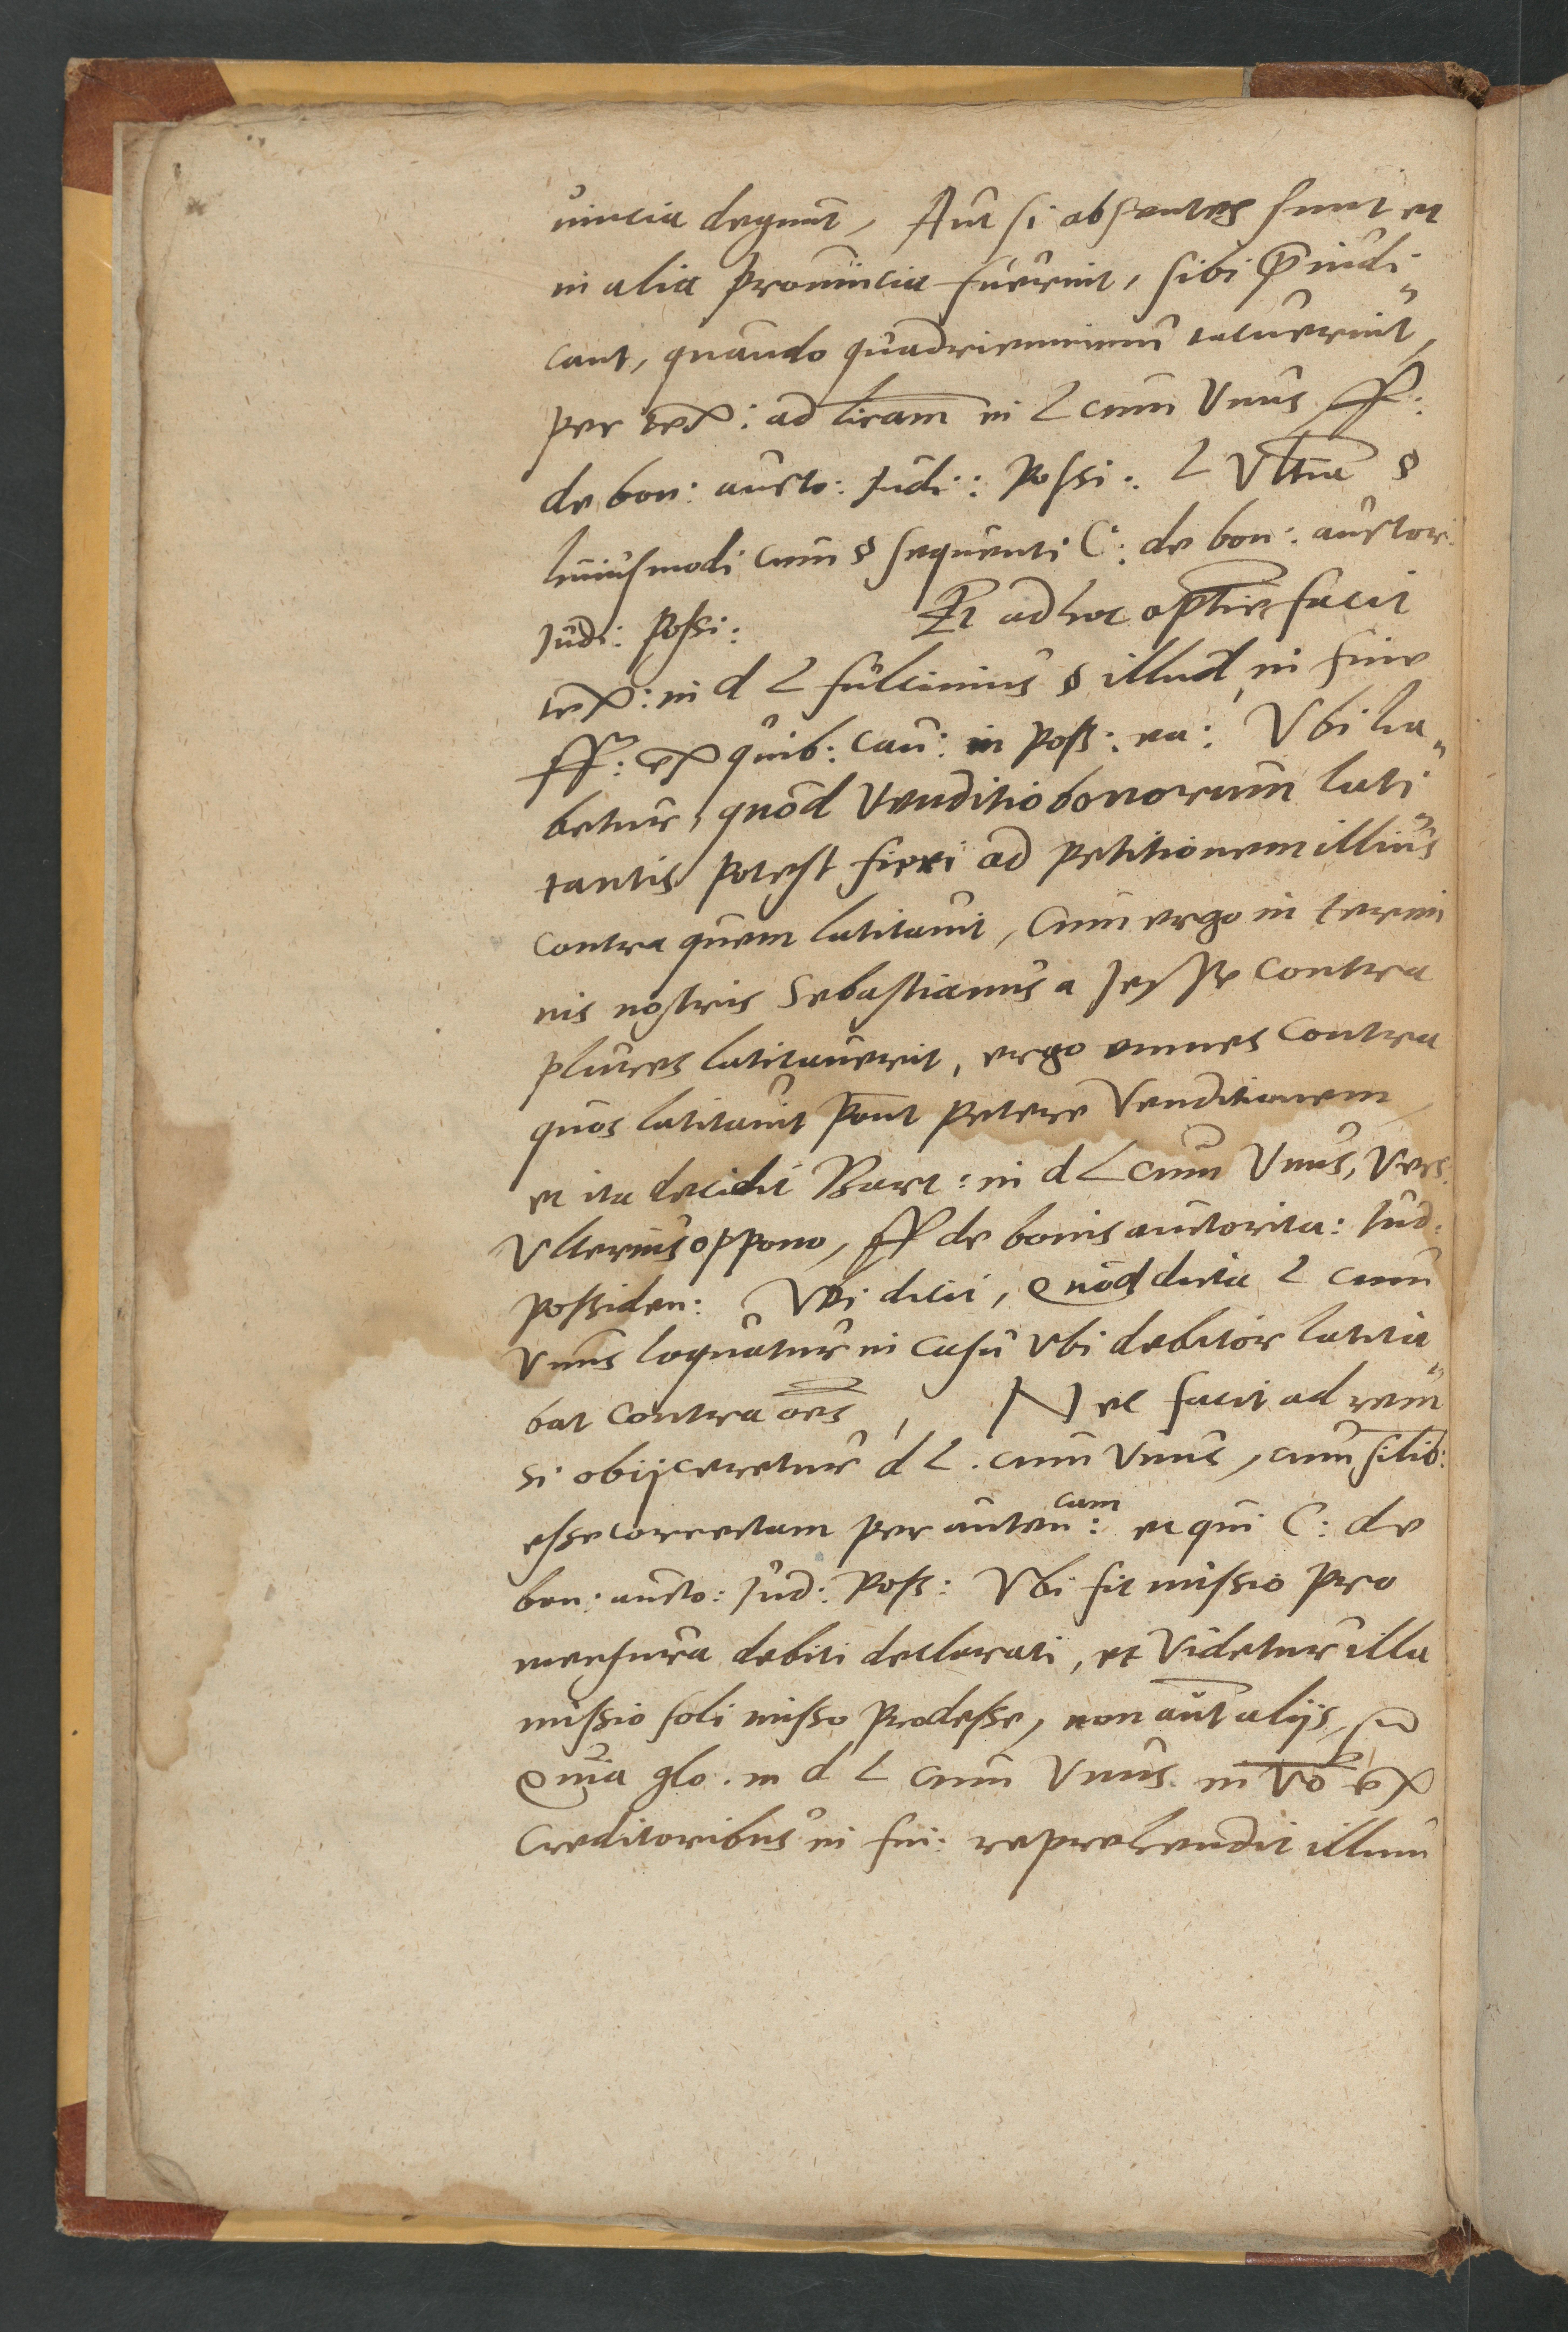 uincia degunt, Aut si absentes sunt et
in alia prouincia fuerint, sibi p̄iudi„
cant, quando quadriennium tacuerint,
per tex: ad lr̄am in L cum Vnus ff:
de bon: aucto: Judi: possi: L Vltīa §
huiusmodi cum § sequenti C: de bon: auctor:
Judi: possi: Et ad hoc optīe facit
tex: in d L fulcinius § illud, in fine
ff: ex quib: cau: in poss: ea: Vbi ha„
betur, quod Venditio bonorum lati„
tantis potest fieri ad petitionem illius
contra quem latitauit, Cum ergo in termi
nis nostris Sebastianus a Jesse contra
plures latitauerit, ergo omnes contra
quos latitauit pn̄t petere Venditionem,
et ita decidit Bart: in d L cum Vnus, Vers:
Vlterius oppono, ff de bonis auctorita: Jud:
possiden: Vbi dicit, Quod dicta L cum
Vnus loquatur in casu Vbi debitor latita„
bat contra oēs, Nec facit ad rem
si obijceretur d L. cum Vnus, cum silib:
esse correctam per auten: cam et qui C: de
bon: aucto: Jud: poss: Vbi fit missio pro
mensura debiti declarati, et Videtur illa
missio soli misso prodesse, non aūt alijs, sꝫ
Quia glo. in d L cum Vnus in Vo ex
Creditoribus in fi: reprehendit illum